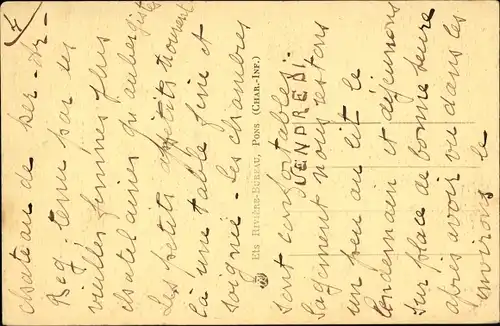 7
chateau de Ker-Ar-
Beg. tenu par ses
vieilles femmes plus
chatelaines qu'aubergistes
Les petits appétits trouvent
là une table fine et
soignée - les chambres
Ets RIVIÈRE-BUREAU, PONS (CHAR.-INF.)
sont confortables.
VENDREDI.
Sagement nous restons
un peu au lit le
lendemain et déjeunons
sur place de bonne heure
après avoir vu dans les
environs le